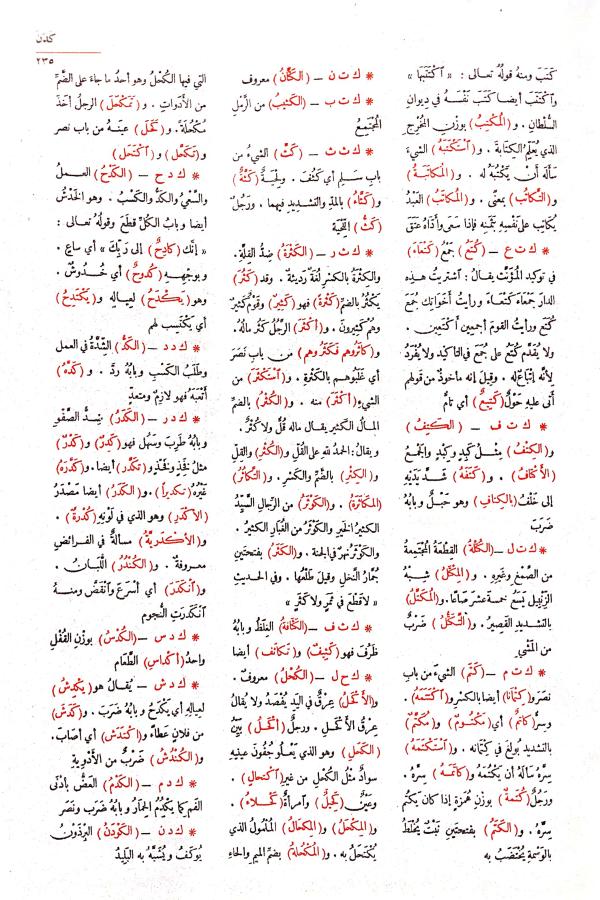 كدن
٢٣٥
كَتَبَ ومنهُ قولُهُ تعالى : « اكْتَتَبَهَا »
واكْتَتَبَ أيضا كَتَبَ نَفْسَهُ في ديوانِ
السُّلطان . و(المُكْتِبُ) بوزن المُخْرِجِ
الذي يُعَلِّمُ الكِتابَةَ . و(اسْتَكْتَبَهُ) الشيءَ
سألَهُ أَنْ يَكْتُبَهُ له . و(المُكاتَبَةُ)
و(التَّكاتُبُ) بمعنًى . و(المُكاتَبُ) العَبْدُ
يُكاتِبُ على نَفْسِهِ بثَمَنِهِ فإذا سَعَى وأَدّاهُ عَتَقَ
* ك ت ع – (كُتَعُ) جَمْعُ (كَتْعَاءَ)
في توكيد المؤَنَّثِ يقال : اشتريتُ هذه
الدارَ جَمْعَاءَ كَتْعَاءَ ورأيتُ أَخَواتِكَ جُمَعَ
كُتَعَ ورأيتُ القومَ أجمعين أكْتَعِين .
ولا يُقَدَّم كُتَعُ على جُمَعَ في التأكيد ولا يُفْرَدُ
لأنه إتْبَاعٌ له . وقيل إنه مأخوذٌ من قولهم
أَتَى عليه حَوْلٌ (كَتِيعٌ) أي تامٌّ
* ك ت ف – (الكَتِفُ)
و(الكِتْفُ) مِثْلُ كَبِدٍ وكِبْدٍ والجمعُ
(الأَكْتَافُ) . و(كَتَفَهُ) شَدَّ يَدَيْهِ
إلى خَلْفُ (بالكِتَافِ) وهو حَبْلٌ وبابُهُ
ضَرَبَ
* ك ت ل – (الكُتْلَةُ) القِطْعَةُ المُجْتَمِعَةُ
من الصَّمْغِ وغيرهِ . و(المِكْتَلُ) شِبْهُ
الزِّنْبِيلِ يَسَعُ خمسةَ عشرَ صاعًا . و(المُكَتَّلُ)
بالتشديد القصيرُ . و(التَّكَتُّلُ) ضَرْبٌ
من المَشْيِ
* ك ت م – (كَتَمَ) الشيءَ من بابِ
نصَرَ و(كِتْمَانًا) أيضا بالكسر و(اكْتَتَمَهُ) .
وسِرٌّ (كاتِمٌ) أي (مَكْتُومٌ) و(مُكَتَّمٌ)
بالتشديد بُولِغَ في كِتْمَانِه . و(اسْتَكْتَمَهُ)
سِرَّهُ سألَهُ أن يَكْتُمَهُ و(كاتَمَهُ) سِرَّهُ .
ورجُلٌ (كُتَمَةٌ) بوزن هُمَزَةٍ إذا كان يكتُم
سِرَّهُ . و(الكَتَمُ) بفتحتين نَبْتٌ يُخْلَطُ
بالوَسْمَةِ يُخْتَضَبُ به
* ك ت ن – (الكَتَّانُ) معروف
* ك ث ب – (الكَثِيبُ) من الرَّمْلِ
المُجْتَمِعُ
* ك ث ث – (كَثَّ) الشيءُ من
بابِ سَلِمَ أي كَثُفَ . ولِحْيَةٌ (كَثَّةٌ)
و(كَثَّاءُ) بالمد والتشديد فيهما . ورَجُلٌ
(كَثُّ) اللِّحْيَةِ
* ك ث ر – (الكَثْرَةُ) ضِدُّ القِلَّةِ .
والكِثْرَةُ بالكسر لُغَةٌ رديئةٌ . وقد (كَثُرَ)
يَكْثُرُ بالضم (كَثْرَةً) فهو (كَثِيرٌ) وقومٌ كثيرٌ
وهم كَثِيرون . و(أَكْثَرَ) الرجُلُ كَثُرَ مالُهُ .
و(كاثَرُوهم فكَثَرُوهم) من باب نَصَرَ
أي غَلَبُوهم بالكَثْرَةِ . و(اسْتَكْثَرَ) من
الشيءِ (أكْثَرَ) منه . و(الكُثْرُ) بالضم
المالُ الكثيرُ يقال ماله قُلٌّ ولا كُثْرٌ .
ويقال : الحمدُ للهِ على القُلِّ و(الكُثْرِ) والقِلِّ
و(الكِثْرِ) بالضَّمِّ والكَسْرِ . و(التَّكاثُرُ)
(المُكَاثَرَةُ) . و(الكَوْثَرُ) من الرِّجالِ السَّيِّدُ
الكثيرُ الخَيْرِ والكَوْثَرُ من الغُبارِ الكثيرُ .
والكَوْثَرُ نَهْرٌ في الجَنَّةِ . و(الكَثَرُ) بفتحتين
جُمَّارُ النَّخْلِ وقيلَ طَلْعُهَا . وفي الحديثِ
« لا قَطْعَ في ثَمَرٍ ولا كَثَرٍ »
* ك ث ف – (الكَثَافَةُ) الغِلَظُ وبابُهُ
ظَرُفَ فهو (كَثِيفٌ) و(تكاثَفَ) أيضا
* ك ح ل – (الكُحْلُ) معروفٌ .
و(الأَكْحَلُ) عِرْقٌ في اليَدِ يُفْصَدُ ولا يُقالُ
عِرْقُ الأَكْحَلِ . ورجلٌ (أكْحَلُ) بَيِّنُ
(الكَحَلِ) وهو الذي يَعْلُو جُفُونَ عينيهِ
سوادٌ مثلُ الكُحْلِ من غير (اكْتِحالٍ) .
وعينٌ (كَحِيلٌ) وامرأةٌ (كَحْلاءُ) .
و(المِكْحَلُ) و(المِكْحَالُ) المُلْمُولُ الذي
يكْتَحَلُ به . و(المُكْحُلَةُ) بضم الميم والحاء
التي فيها الكُحْلُ وهو أحدُ ما جاءَ على الضَّمِّ
من الأَدَواتِ . و(تَمَكْحَلَ) الرجلُ أخَذَ
مُكْحُلَةً . و(كَحَلَ) عينَهُ من باب نصر
و(تَكَحَّلَ) و(اكْتَحَلَ)
* ك د ح – (الكَدْحُ) العملُ
والسَّعْيُ والكَدُّ والكَسْبُ . وهو الخَدْشُ
أيضا وبابُ الكُلِّ قَطَعَ وقولُهُ تعالى :
« إنَّكَ (كادِحٌ) إلى رَبِّكَ » أي ساعٍ .
وبوجهِهِ (كُدُوحٌ) أي خُدُوشٌ .
وهو (يَكْدَحُ) لعِيالِهِ و(يَكْتَدِحُ)
أي يكْتَسِبُ لهم
* ك د د – (الكَدُّ) الشِّدَّةُ في العملِ
وطَلَبُ الكَسْبِ وبابُهُ ردَّ . و(كَدَّهُ)
أَتْعَبَهُ فهو لازِمٌ ومتعدٍّ
* ك د ر – (الكَدَرُ) ضِدُّ الصَّفْوِ
وبابُهُ طَرِبَ وسَهُلَ فهو (كَدِرٌ) و(كَدْرٌ)
مثلُ فَخِذٍ وفَخْذٍ و(تكَدَّرَ) أيضا. و(كَدَّرَهُ)
غيرُهُ (تكديرًا) . و(الكَدَرُ) أيضا مَصْدَرُ
(الأَكْدَرِ) وهو الذي في لَوْنِهِ (كُدْرَةٌ) .
و(الأَكْدَرِيَّةُ) مسألةٌ في الفرائضِ
معروفةٌ . و(الكُنْدُرُ) اللُّبَانُ .
و(انْكَدَرَ) أي أسْرَعَ وانْقَضَّ ومنهُ
انْكَدَرَتِ النُّجومُ
* ك د س – (الكُدْسُ) بوزنِ القُفْلِ
واحدُ (أكْداسِ) الطَّعَامِ
* ك د ش – يُقالُ هو (يَكْدِشُ)
لعِيالِهِ أي يَكْدَحُ وبابُهُ ضَرَبَ . و(كَدَشَ)
من فُلانٍ عَطاءً و(اكْتَدَشَ) أي أصابَ .
و(الكُنْدُشُ) ضَرْبٌ من الأَدْوِيَةِ
* ك د م – (الكَدْمُ) العَضُّ بأَدْنَى
الفَمِ كما يَكْدُمُ الحِمَارُ وبابُهُ ضَرَبَ ونَصَرَ
* ك د ن – (الكَوْدَنُ) البِرْذَوْنُ
يُوكَفُ ويُشَبَّهُ بِهِ البَلِيدُ